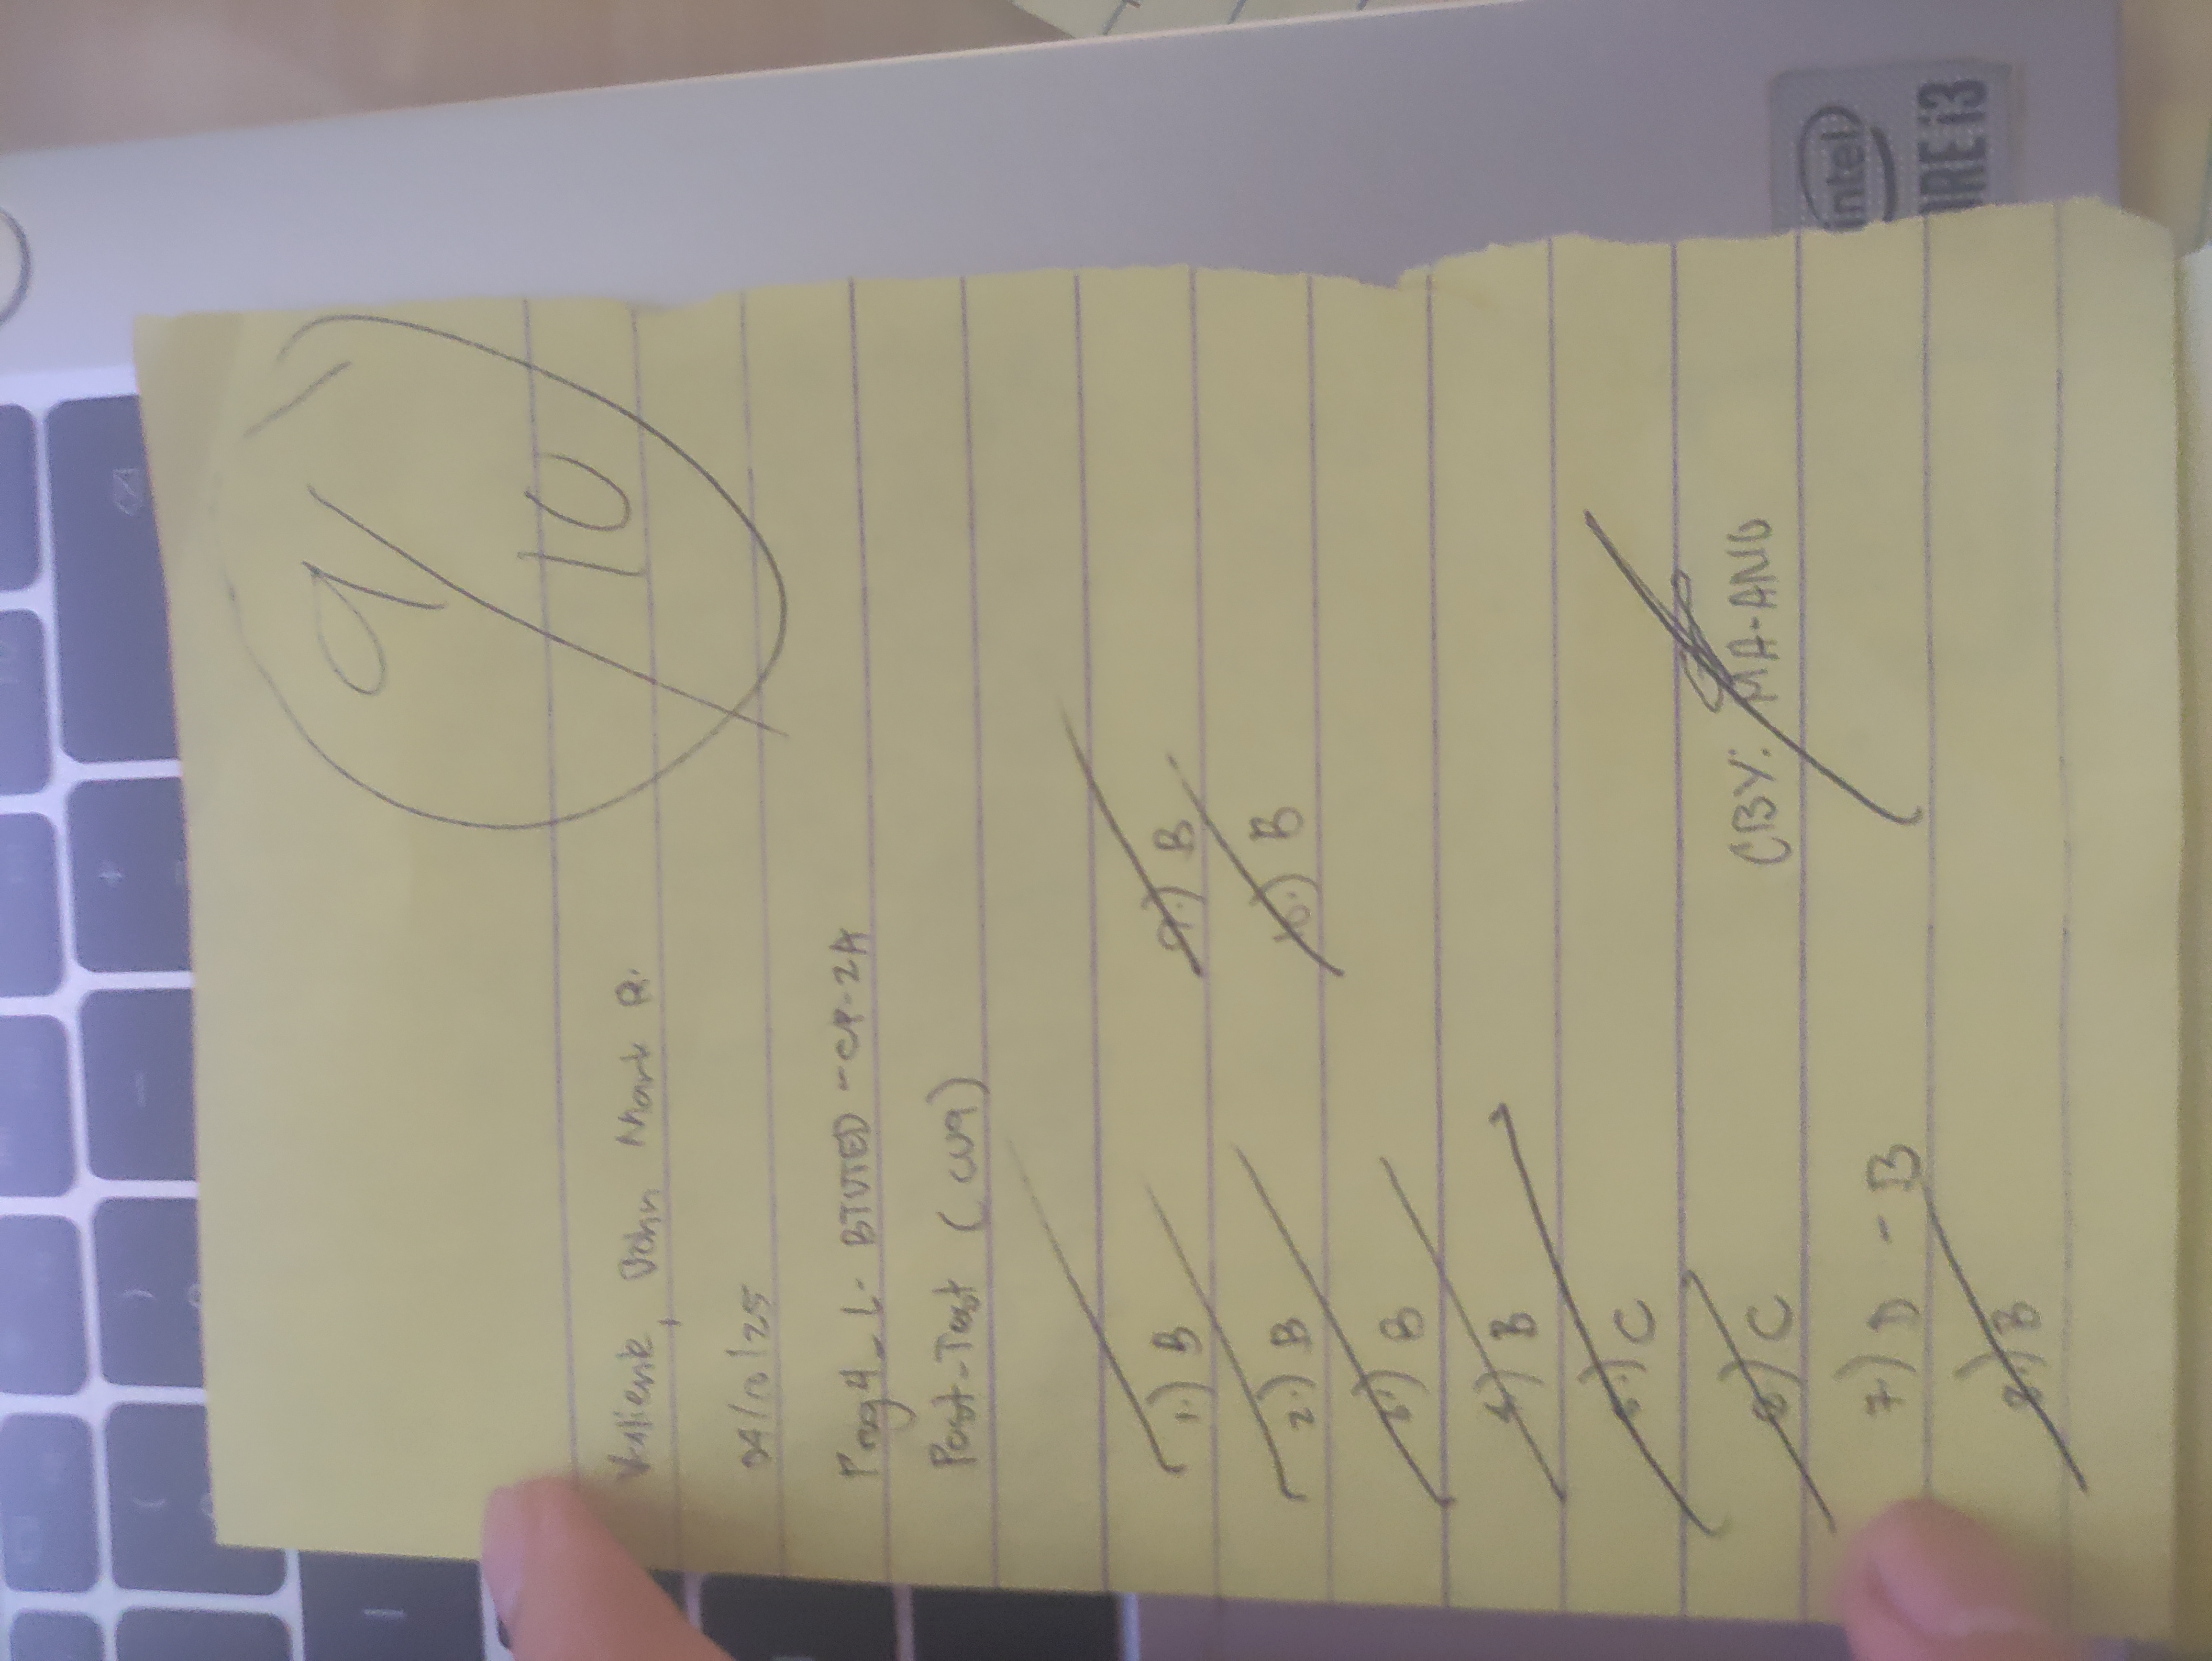 9/10
Valiente, John Mark R.
04/10/25
Prog4_L- BTVTED -CP-2A
Post-Test (CU9)
1.) B
2.) B
3.) B
4.) B
5.) C
6.) C
7.) D - B
8.) B
9.) B
10.) B
CBY: MA-ANO
intel
CORE i3